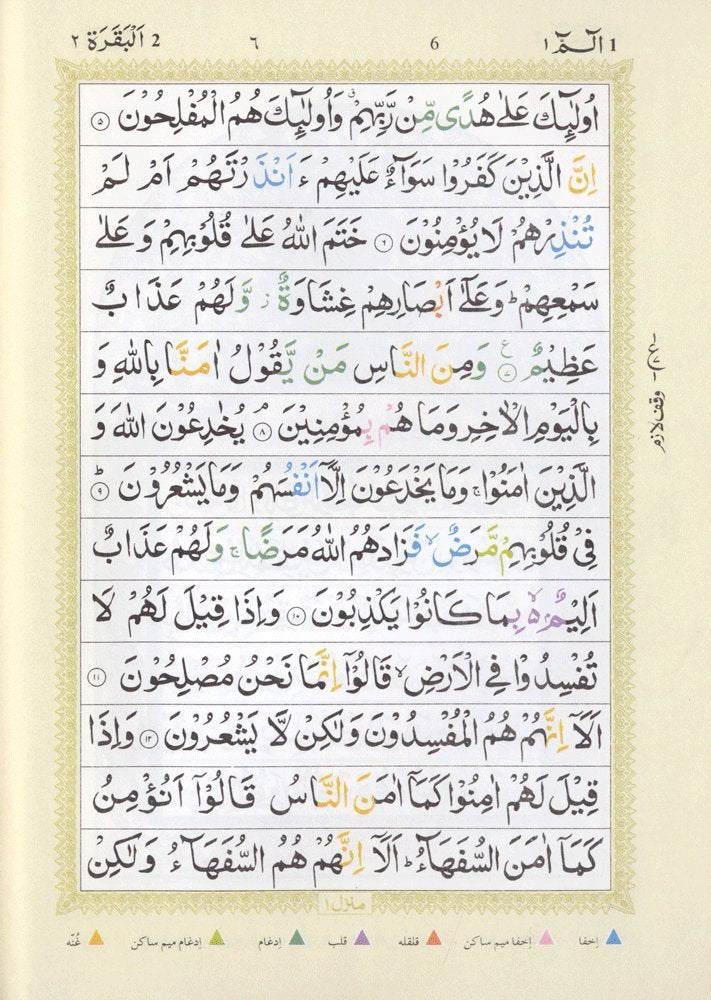 1 الٓمّٓ ١ 6 ٦ 2 اَلْبَقَرَة ٢
اُولٰٓئِكَ عَلٰى هُدًى مِّنْ رَّبِّهِمْ ۗ وَاُولٰٓئِكَ هُمُ الْمُفْلِحُوْنَ ٥
اِنَّ الَّذِيْنَ كَفَرُوْا سَوَآءٌ عَلَيْهِمْ ءَ اَنْذَرْتَهُمْ اَمْ لَمْ
تُنْذِرْهُمْ لَا يُؤْمِنُوْنَ ٦ خَتَمَ اللّٰهُ عَلٰى قُلُوْبِهِمْ وَ عَلٰى
سَمْعِهِمْ ؕ وَ عَلٰٓى اَبْصَارِهِمْ غِشَاوَةٌ ز وَّ لَهُمْ عَذَابٌ
عَظِيْمٌ ٧ ع وَ مِنَ النَّاسِ مَنْ يَّقُوْلُ اٰمَنَّا بِاللّٰهِ وَ
بِالْيَوْمِ الْاٰخِرِ وَ مَا هُمْ بِمُؤْمِنِيْنَ ٨ م يُخٰدِعُوْنَ اللّٰهَ وَ
الَّذِيْنَ اٰمَنُوْا ۚ وَمَا يَخْدَعُوْنَ اِلَّاۤ اَنْفُسَهُمْ وَمَا يَشْعُرُوْنَ ٩ ؕ
فِيْ قُلُوْبِهِمْ مَّرَضٌ ۙ فَزَادَهُمُ اللّٰهُ مَرَضًا ۚ وَ لَهُمْ عَذَابٌ
اَلِيْمٌ ۢ ۙ بِمَا كَانُوْا يَكْذِبُوْنَ ١٠ وَ اِذَا قِيْلَ لَهُمْ لَا
تُفْسِدُوْا فِي الْاَرْضِ ۙ قَالُوْۤا اِنَّمَا نَحْنُ مُصْلِحُوْنَ ١١
اَلَاۤ اِنَّهُمْ هُمُ الْمُفْسِدُوْنَ وَ لٰكِنْ لَّا يَشْعُرُوْنَ ١٢ وَ اِذَا
قِيْلَ لَهُمْ اٰمِنُوْا كَمَاۤ اٰمَنَ النَّاسُ قَالُوْۤا اَنُؤْمِنُ
كَمَاۤ اٰمَنَ السُّفَهَآءُ ؕ اَلَاۤ اِنَّهُمْ هُمُ السُّفَهَآءُ وَ لٰكِنْ
ع ٧
وقف لازم
منزل ١
اِخفا اِخفا میم ساکن قلقله قلب اِدغام اِدغام میم ساکن غُنّه